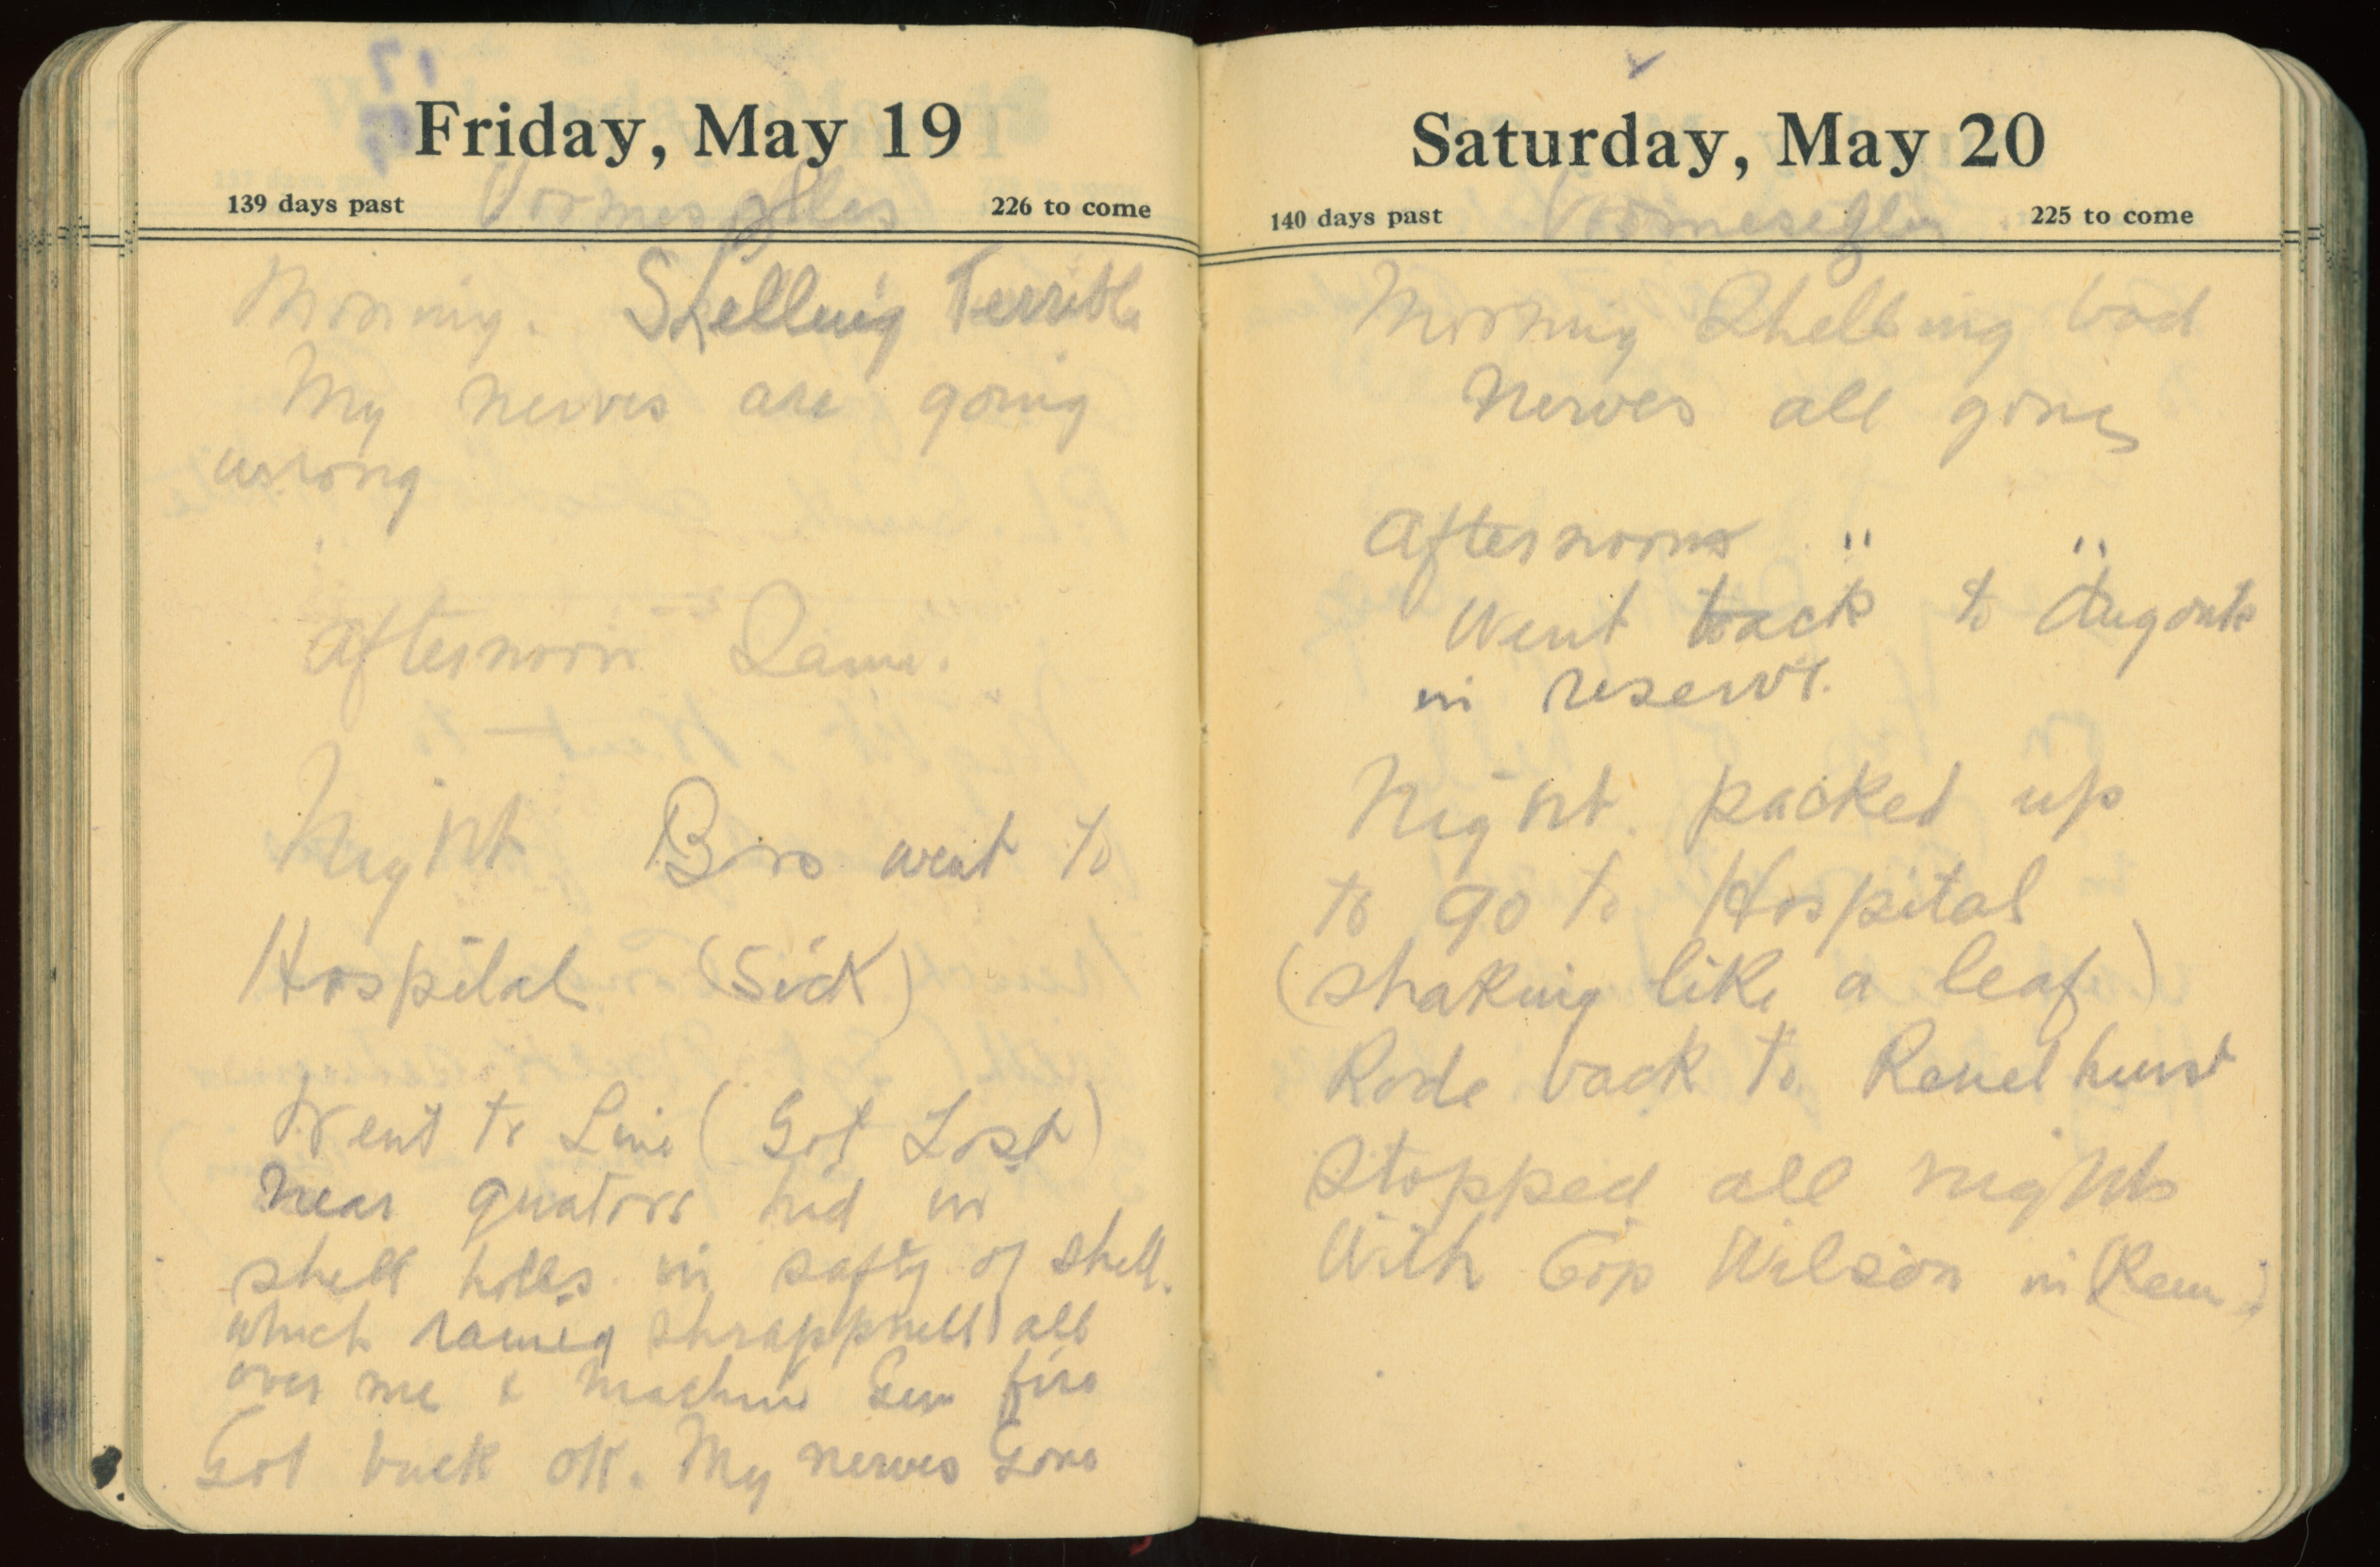 Friday, May 19
139 days past
226 to come
Morning. Shelling Terrible
My nerves are going
wrong
Afternoon Same.
Night Bro went to
Hospital (Sick)
Went to Line (Got Lost)
near hid in
shell holes in safty of shell.
which rained shrappnell all
over me & machine Gun fire
Got back OK. My nerves Gone
Saturday, May 20
140 days past
225 to come
Morning Shelling bad
Nerves all gone
Afternoon " "
Went back to dugouts
in reserve.
Night. packed up
to go to Hospital
(shaking like a leaf)
Rode back to
Stopped all night
With Wilson in